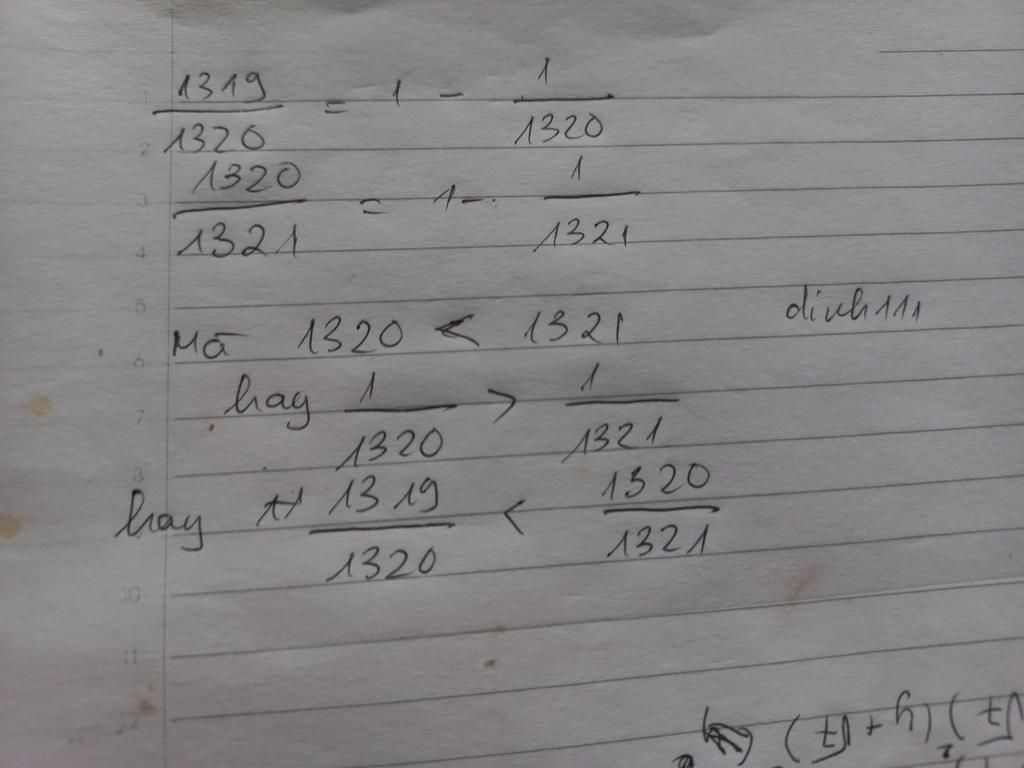 1319/1320 = 1 - 1/1320
1320/1321 = 1 - 1/1321
Mà 1320 < 1321
dinh111
hay 1/1320 > 1/1321
hay 1319/1320 < 1320/1321
√7)(y + √7)